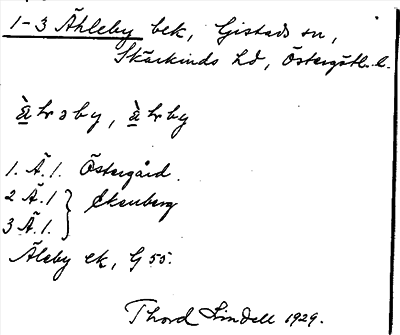 1-3 Åhleby bek, Gistads sn,
Skärkinds hd, Östergötl. l.
å̀lrəby, å̀lrby
1. Ä. 1. Östergård.
2 Ä. 1 } Ekenberg
3 Ä. 1.
Äleby ek, G 55.
Thord Lindell 1929.